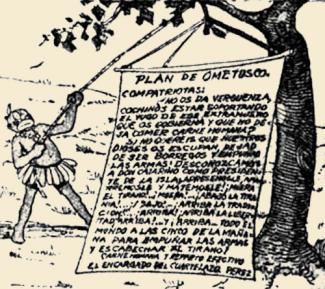 PLAN DE OMETUSCO.
COMPATRIOTAS:
¿NO OS DA VERGÜENZA,
COCHINOS ESTAR SOPORTANDO
EL YUGO DE ESE EXTRANJERO
QUE OS GOBIERNA Y QUE NO DE-
JA COMER CARNE HUMANA?
SI NO QUEREIS QUE NUESTROS
DIOSES OS ESCUPAN, DEJAD
DE SER BORREGOS Y EMPUÑAD
LAS ARMAS! DESCONOZCAMOS
A DON OLIARINO COMO PRESIDEN-
TE DE LA ISLA, APRESEMOSLE, AMA-
RREMOSLE Y MATEMOSLE! ¡MUERA
EL TIRANO! ¡MUERA! ¡ABAJO LA TIRA-
NIA! ¡BAJO! ¡ARRIBA LA TRADI-
CION! ¡ARRIBA! ¡ARRIBA LA LIBER-
TAD! ARRIBA! Y ¡ARRIBA TODO EL
MUNDO A LAS CINCO DE LA MAÑA-
NA PARA EMPUÑAR LAS ARMAS
Y ESCABECHAR AL TIRANO!
CARNE HUMANA Y EFECTIVO
EL ENCARGADO DEL CUARTELAZO. PEREZ